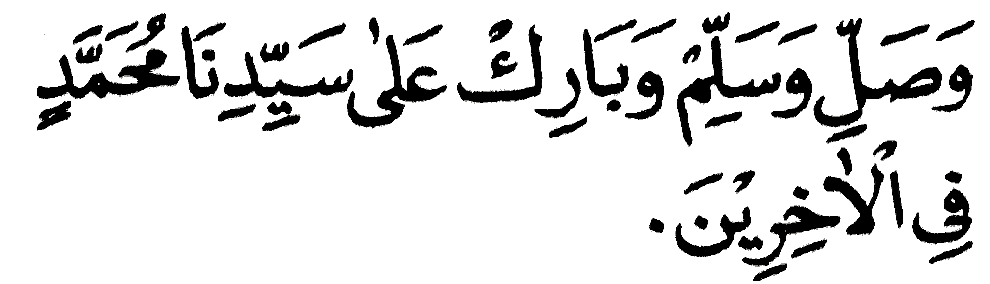 وَصَلِّ وَسَلِّمْ وَبَارِكْ عَلٰى سَيِّدِنَا مُحَمَّدٍ
فِى الْاٰخِرِيْنَ.